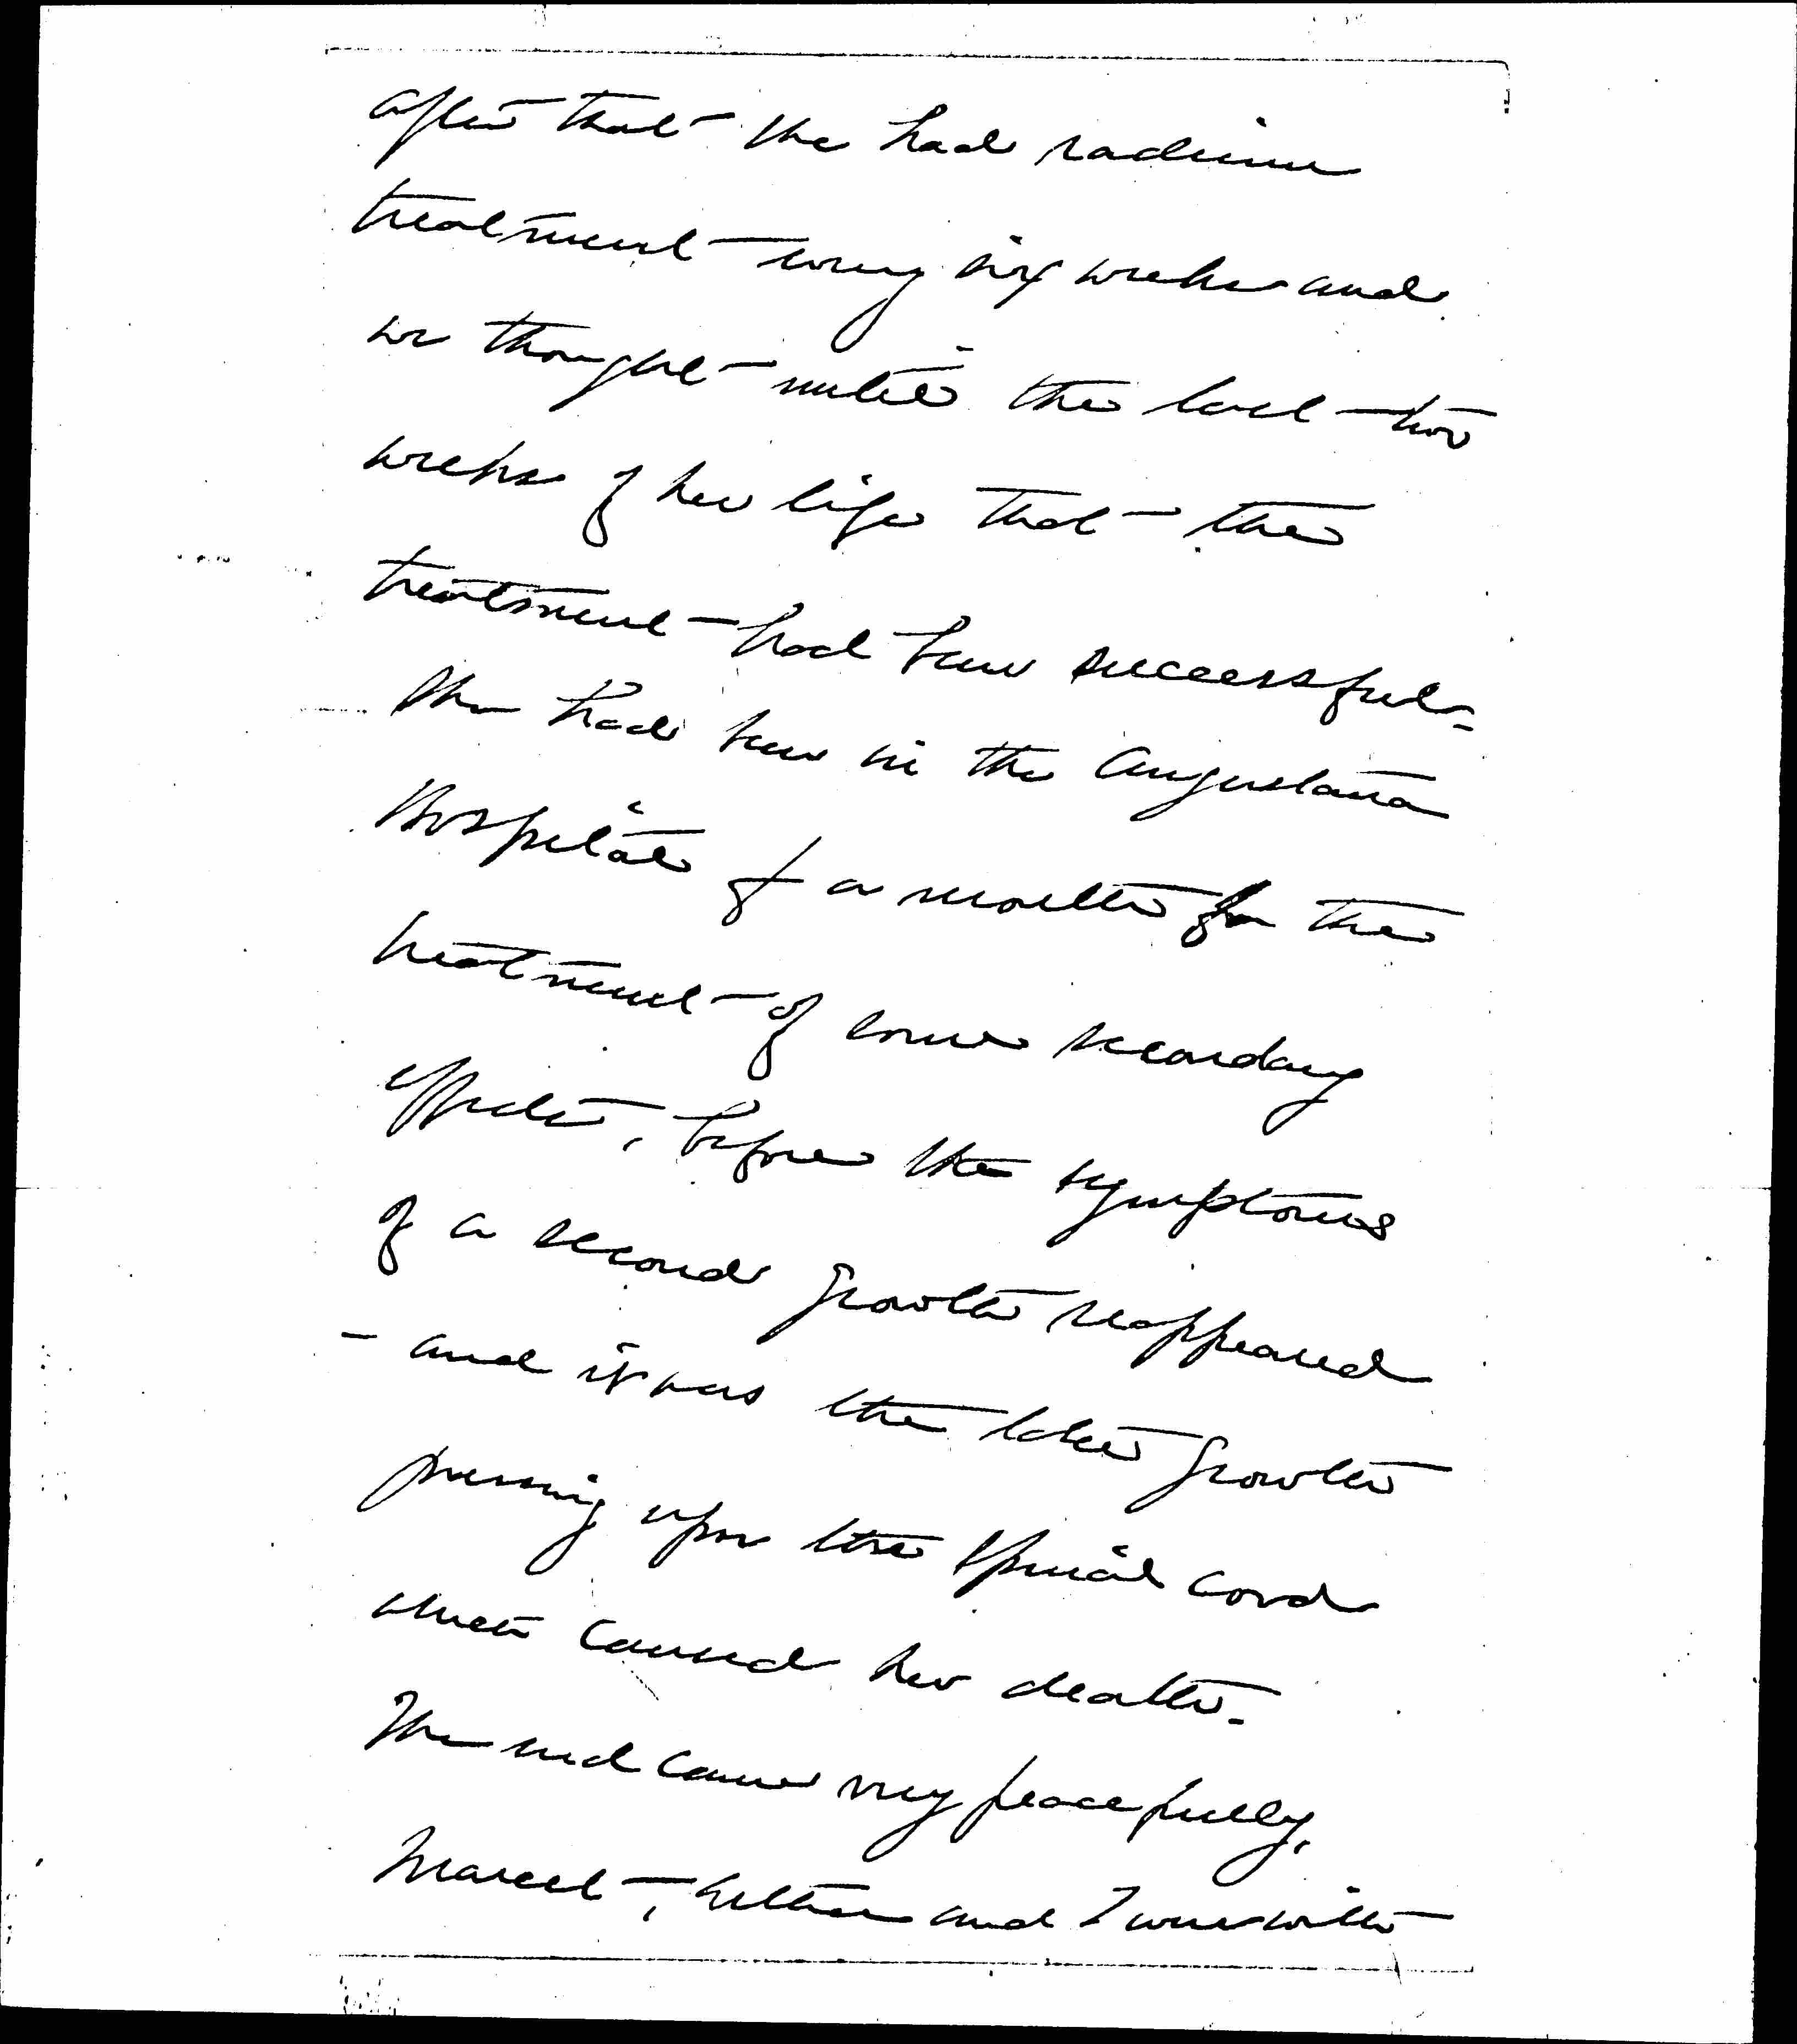 after that she had radium
treatment every six weeks and
we thought until the last two
weeks of her life that the
treatment had been successful-
She had been in the Augustana
Hospital for a month for the
treatment of some secondary
effects, before the symptoms
of a second growth reappeared
- and it was the later growth
pressing upon the spinal cord
which caused her death.
The end came very peacefully.
and I were with